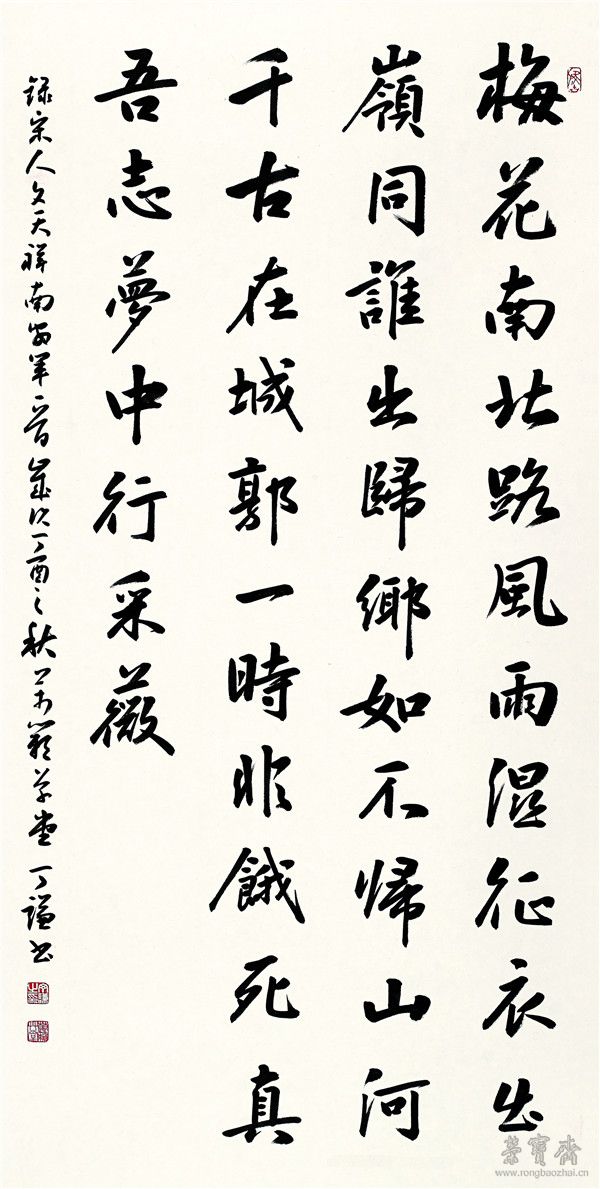 梅花南北路風雨湿征衣出
嶺同誰出歸鄉如不帰山河
千古在城郭一時非餓死真
吾志夢中行采薇
録宋人文天祥南安軍一首歲次丁酉之秋草堂丁謙書
榮寶齋
www.rongbaozhai.cn